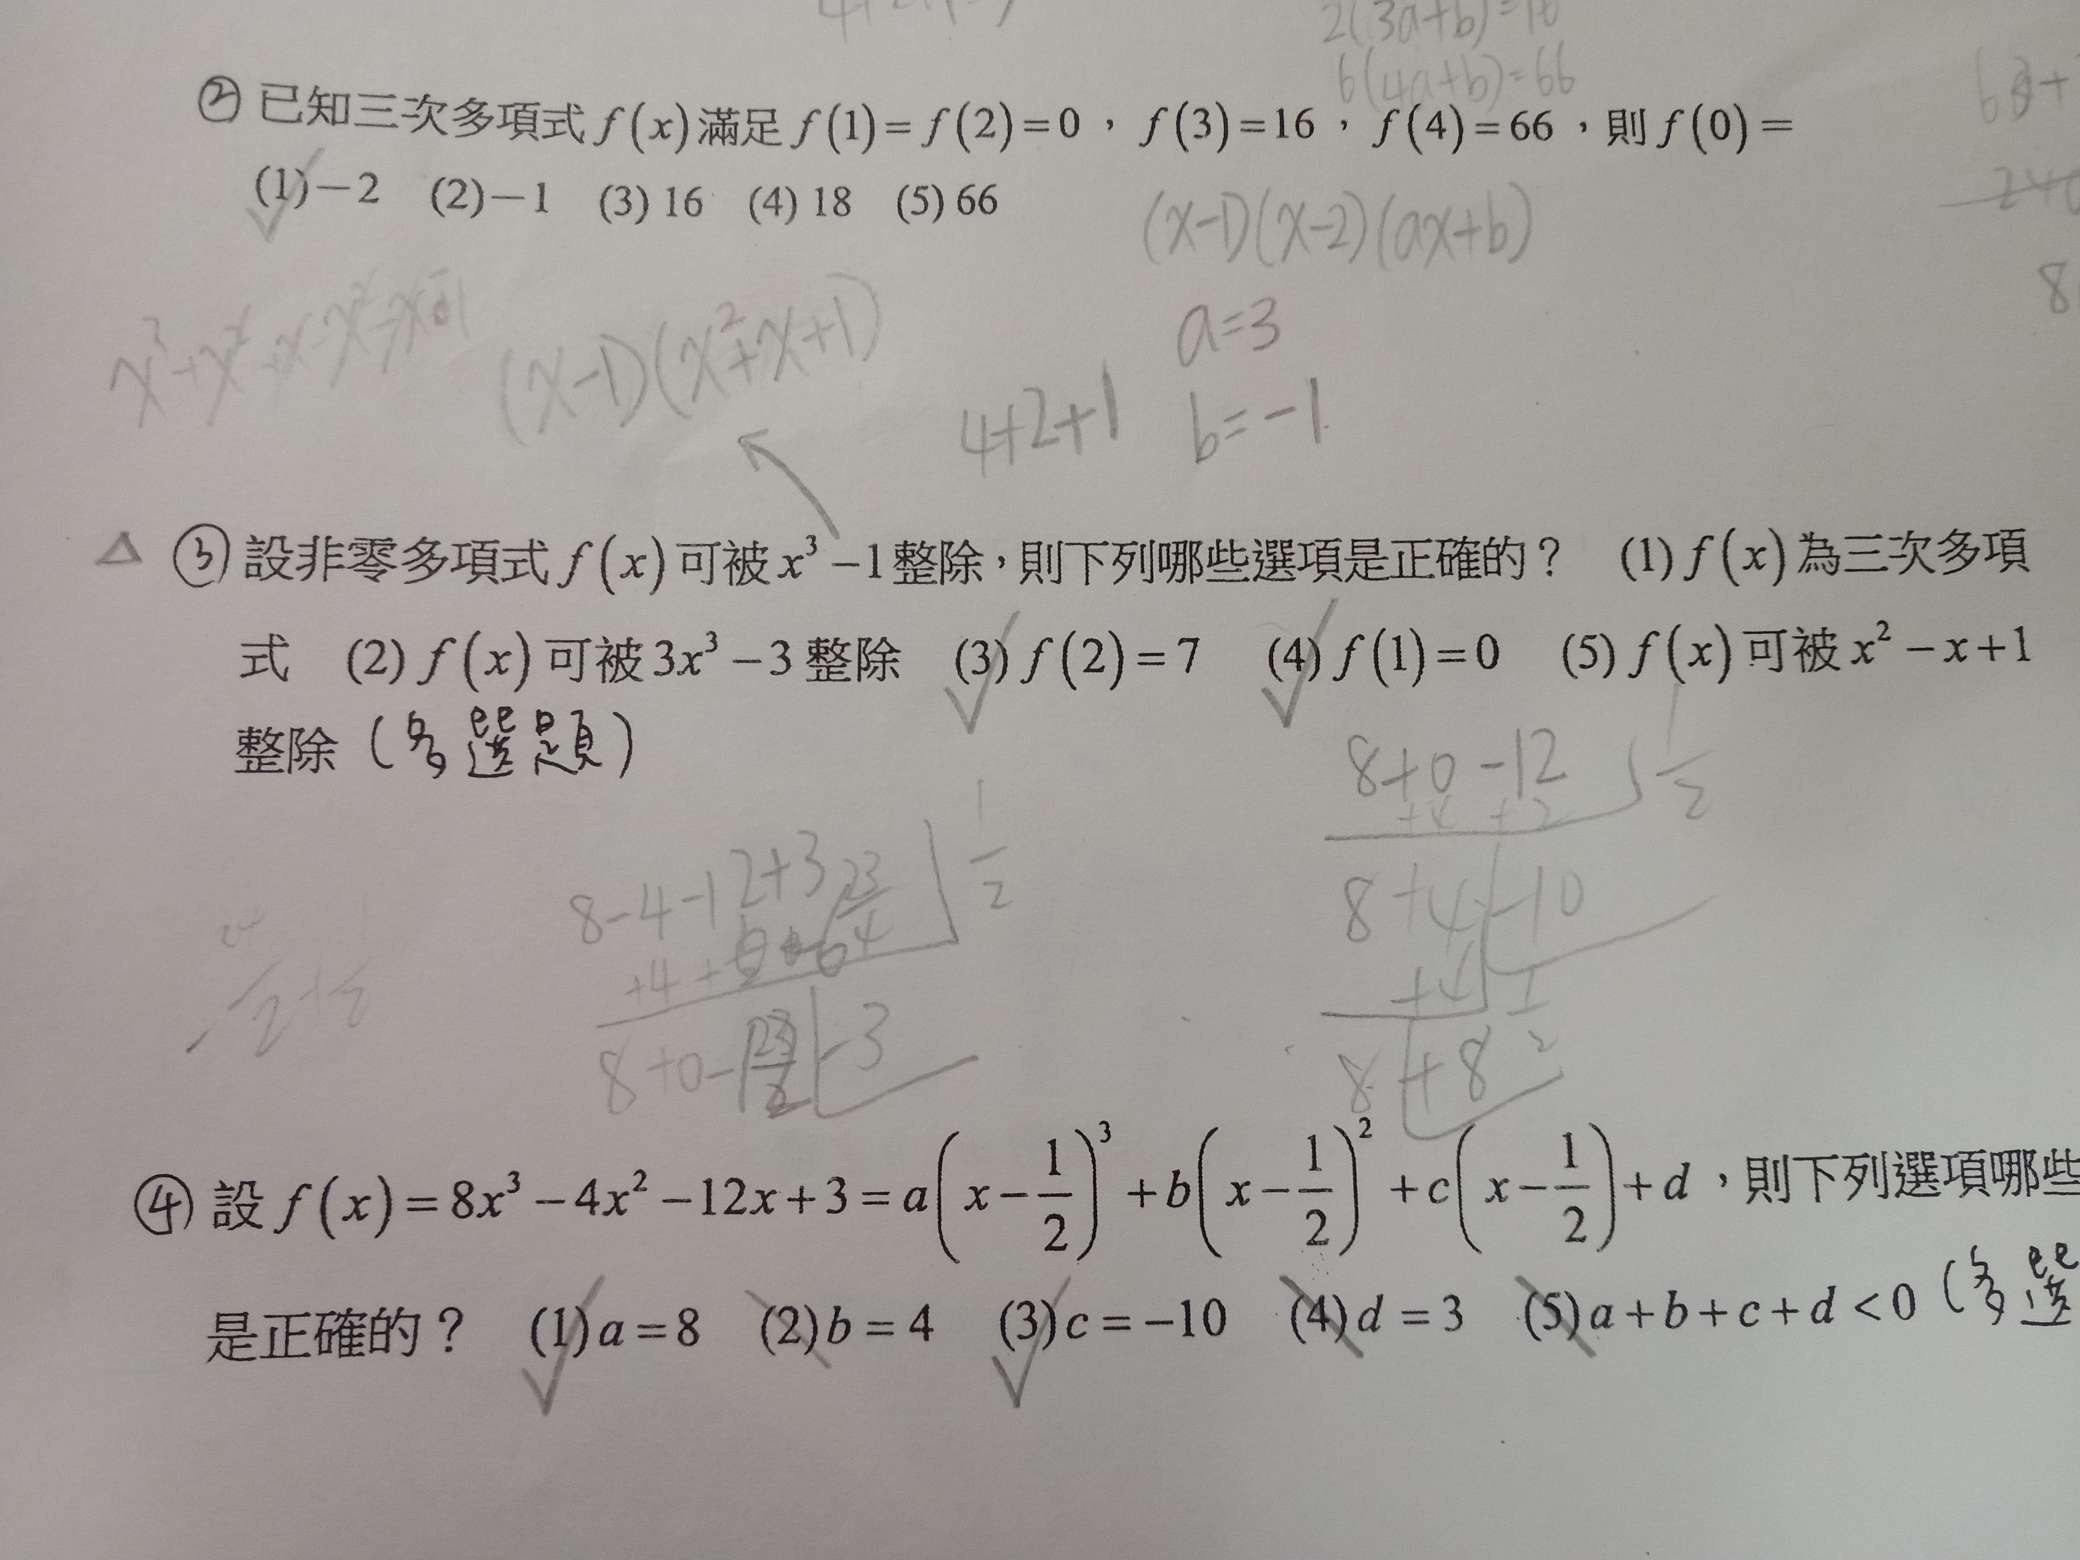 2(3a+b)=16
6(4a+b)=66
② 已知三次多項式 f(x) 滿足 f(1)=f(2)=0，f(3)=16，f(4)=66，則 f(0)=
(1)−2 (2)−1 (3) 16 (4) 18 (5) 66
(x-1)(x-2)(ax+b)
(x-1)(x²+x+1)
a=3
4+2+1
b=-1
△ ③ 設非零多項式 f(x) 可被 x³−1 整除，則下列哪些選項是正確的？ (1) f(x) 為三次多項
式 (2) f(x) 可被 3x³−3 整除 (3) f(2)=7 (4) f(1)=0 (5) f(x) 可被 x²−x+1
整除（多選題）
8+0-12 1/2
+4+2
8+4 -10
+4
8 +8
8-4-12+3 1/2
8+0- -3
④ 設 f(x)=8x³−4x²−12x+3=a(x−1/2)³+b(x−1/2)²+c(x−1/2)+d，則下列選項哪些
是正確的？ (1) a=8 (2) b=4 (3) c=−10 (4) d=3 (5) a+b+c+d<0（多選